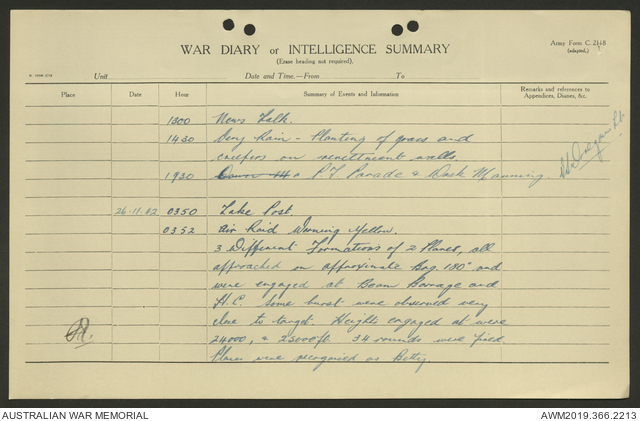 Army Form C. 2118
(adapted.)
WAR DIARY or INTELLIGENCE SUMMARY
(Erase heading not required).
Unit Date and Time.—From To
Place Date Hour Summary of Events and Information Remarks and references to Appendices, Diaries, &c.
1300 News Talk.
1430 Very Rain - Planting of grass and
creepers on revettment walls.
1930 P.T. Parade & Dusk Manning.
26-11-42 0350 Take Post.
0352 Air Raid Warning Yellow.
3 Different Formations of 2 Planes, all
approached on approximate Brg. 130° and
were engaged at Beam Barrage and
H.C. Some burst were observed very
close to target. Heights engaged at were
24000, & 25000 ft. 34 rounds were fired.
Planes were recognised as Betty.
AUSTRALIAN WAR MEMORIAL
AWM2019.366.2213